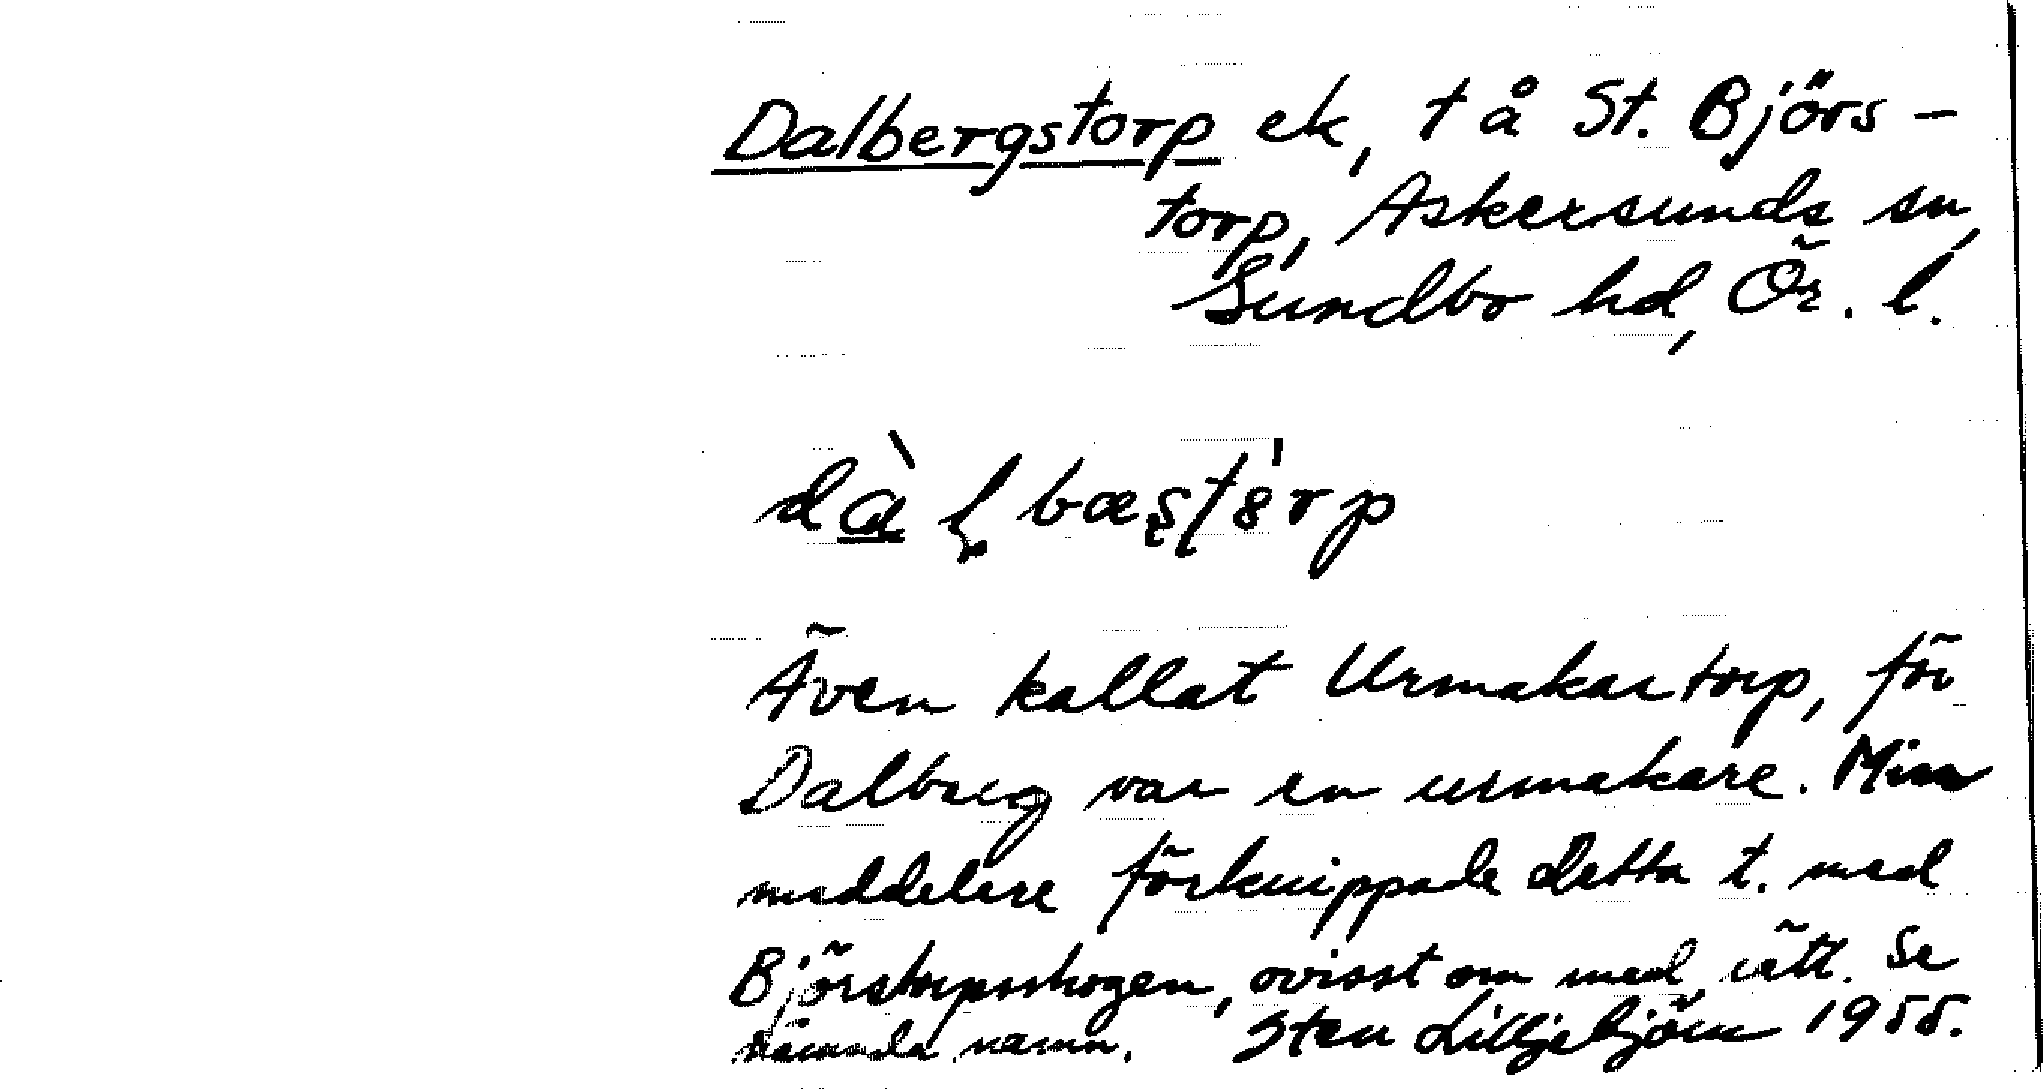 Dalbergstorp ek, t å St. Björs-
torp, Askersunds sn,
Sundbo hd, Ör. l.
dàḷbæʂʈ8rp
Även kallat Urmakartorp, för
Dalberg var en urmakare. Min
meddelare förknippade detta t. med
Björstorpsskogen, ovisst om med rätt. Se
nämnda namn. Sten Lilljebjörn 1955.